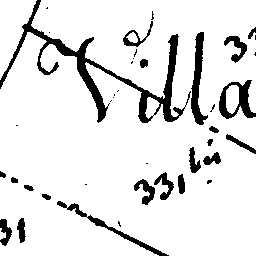 Villa
33
331 bis
31